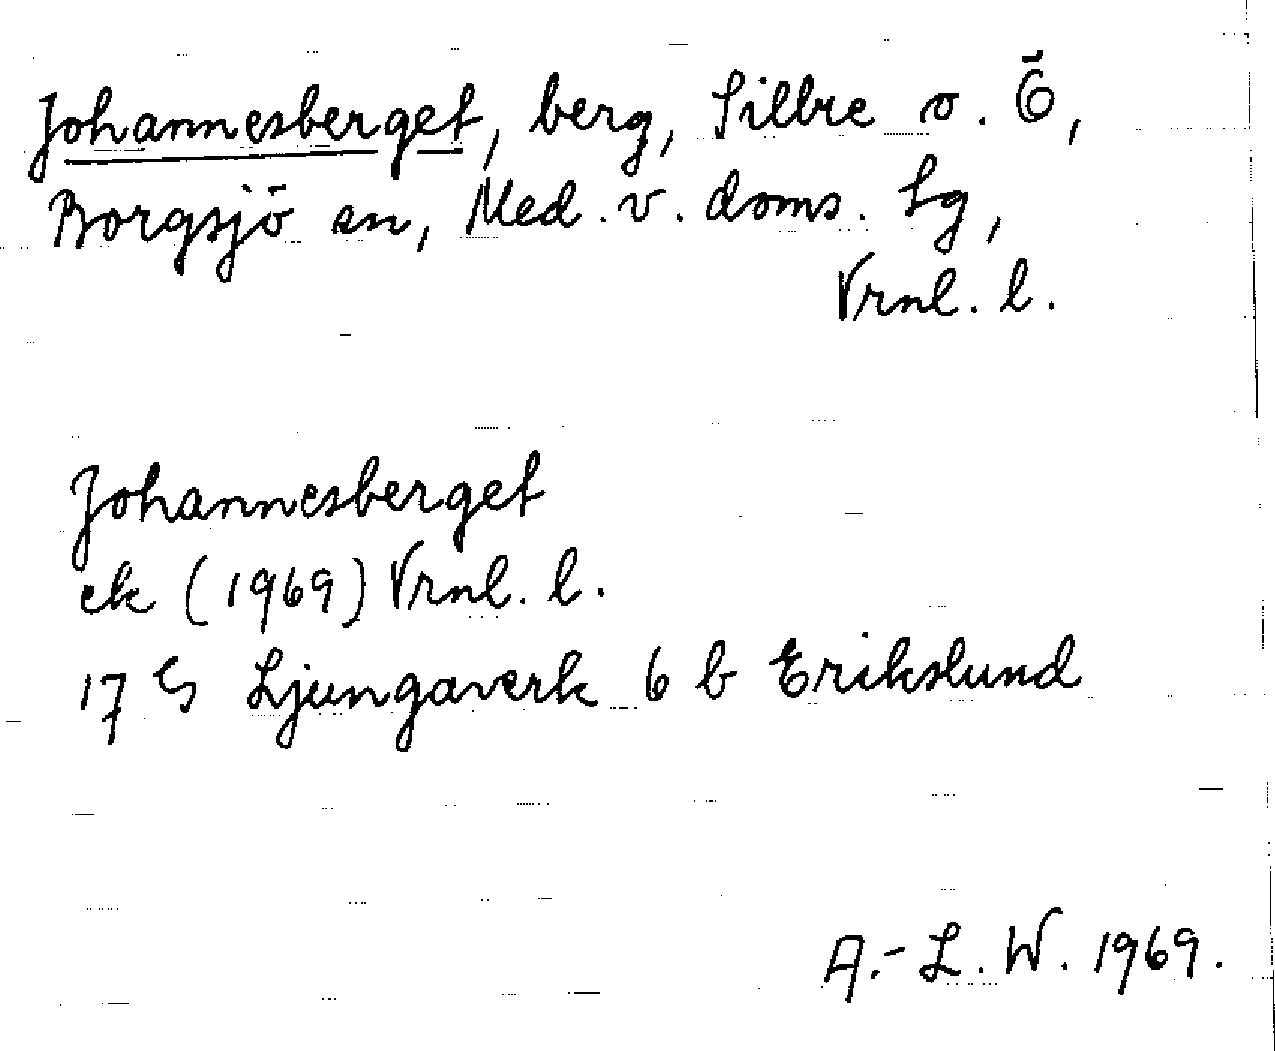 Johannesberget, berg, Sillre o. Ö,
Borgsjö sn, Med. v. doms. Lg,
Vrnl. l.
Johannesberget
ek (1969) Vrnl. l.
17 G Ljungaverk 6 b Erikslund
A.-L. W. 1969.